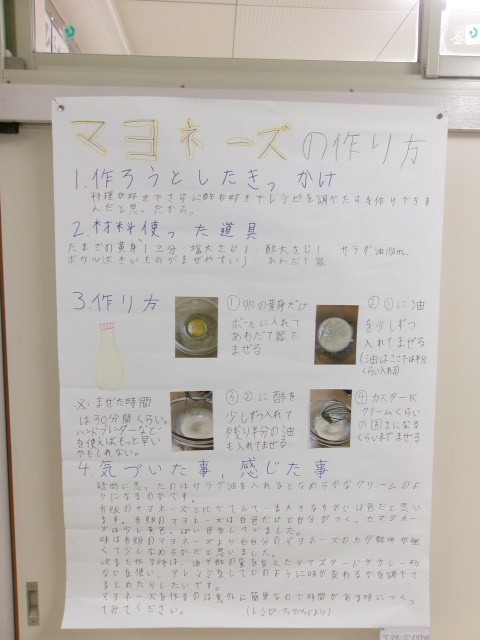 マヨネーズの作り方
1.作ろうとしたきっかけ
料理が好きでさらに酢も好きでレシピを調べたら手作りできる
んだと思ったから。
2.材料使った道具
たまごの黄身1コ分 塩大さじ1 酢大さじ1 サラダ油100mL
ボウル(大きいものがまぜやすい) あわだて器
3.作り方
①卵の黄身だけ
ボールに入れて
あわだて器で
まぜる
②①に油
を少しずつ
入れてまぜる
(油はここでは半分
くらい入れる)
※まぜた時間
は30分間くらい。
ハンドブレンダーなど
を使えばもっと早い
かもしれない。
③②に酢を
少しずつ入れて
残り半分の油
も入れてまぜる
④カスタード
クリームくらい
の固さになる
くらいまでまぜる
4.気づいた事,感じた事
はサラダ油を入れるとなめらかなクリームのよ
うになるのかです。
市販のマヨネーズと比べてみて一番大きなちがいは色だと思い
ます。市販のマヨネーズは
味は市販のマヨネーズよりも自分のマヨネーズの方が酸味が強
くて少しなめらかだと思いました。
次また作る時は、油や酢の量を変えたりマスタードやカレー粉
などを使い、アレンジをしてどのように味が変わるかを調べて
まとめたりしたいです。
マヨネーズを作るのは意外に簡単なので時間がある時につくっ
てみてください。